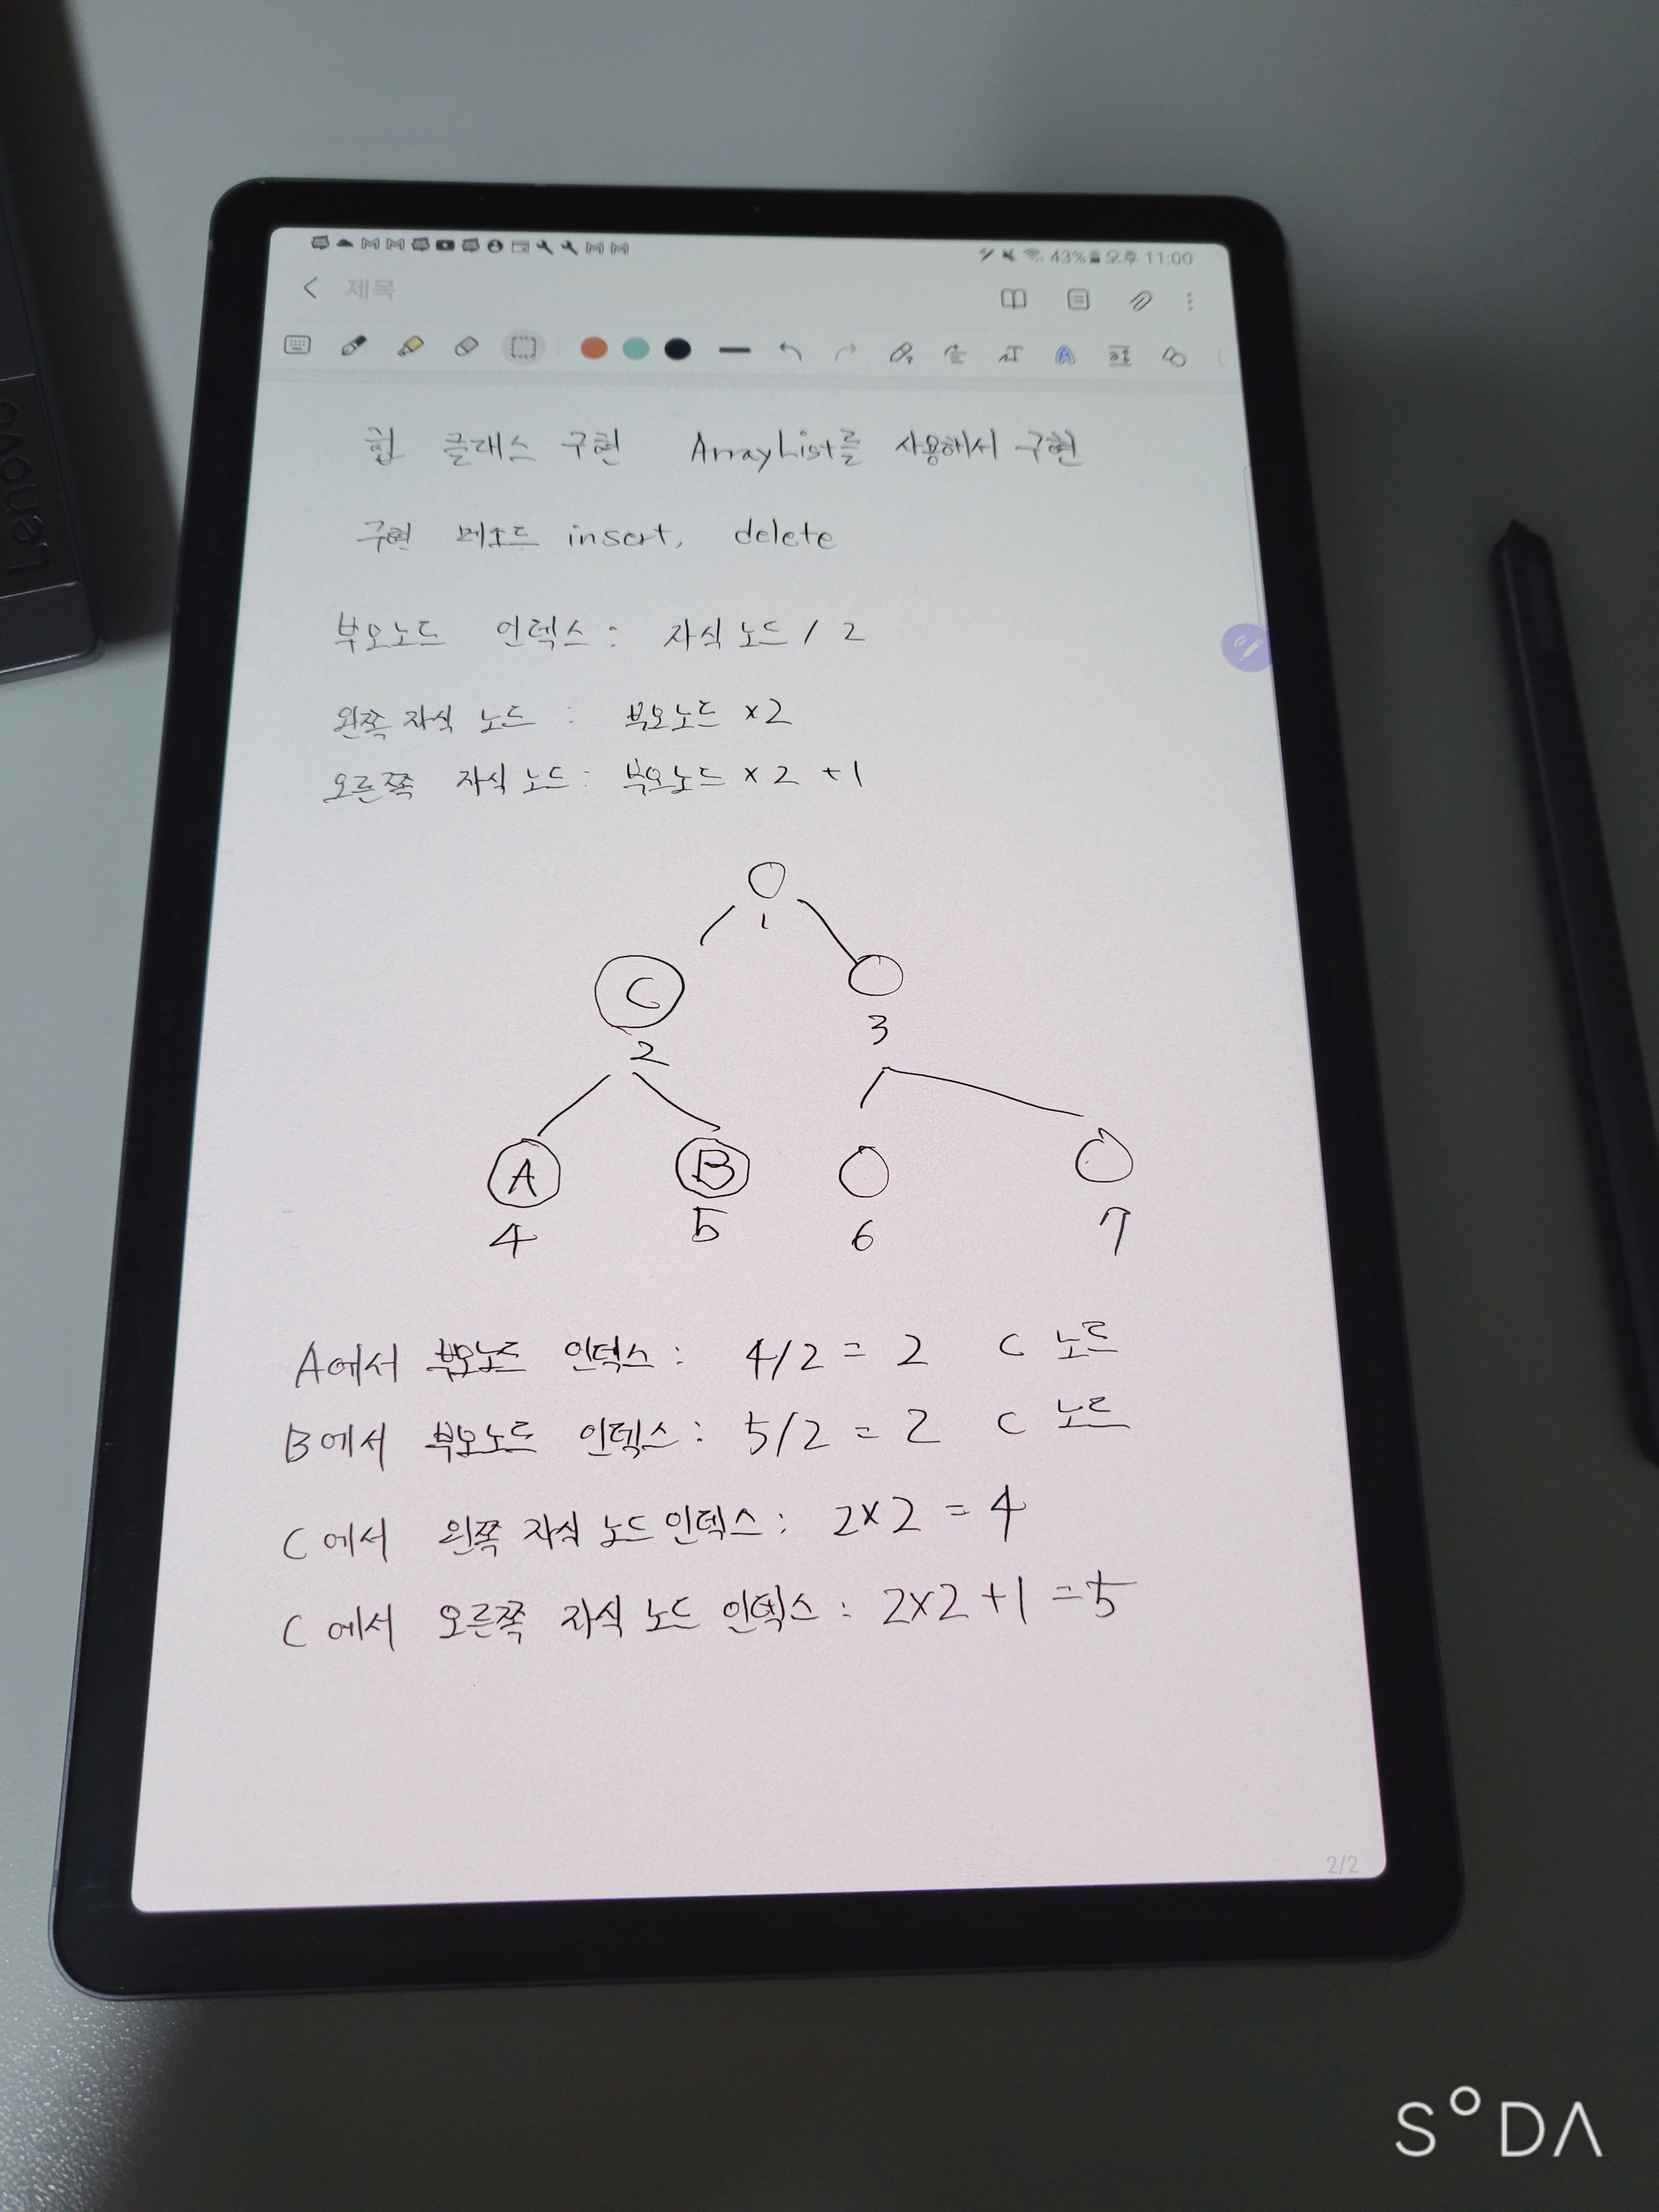 Lenovo
43% 오후 11:00
제목
힙 클래스 구현 ArrayList를 사용해서 구현
구현 메소드 insert, delete
부모노드 인덱스 : 자식 노드 / 2
왼쪽 자식 노드 : 부모노드 x2
오른쪽 자식 노드 : 부모노드 x 2 +1
1
C
2
3
A
B
4
5
6
7
A에서 부모노드 인덱스 : 4/2 = 2 C 노드
B에서 부모노드 인덱스 : 5/2 = 2 C 노드
C에서 왼쪽 자식 노드 인덱스 : 2x2 = 4
C에서 오른쪽 자식 노드 인덱스 : 2x2 +1 =5
2/2
SODA